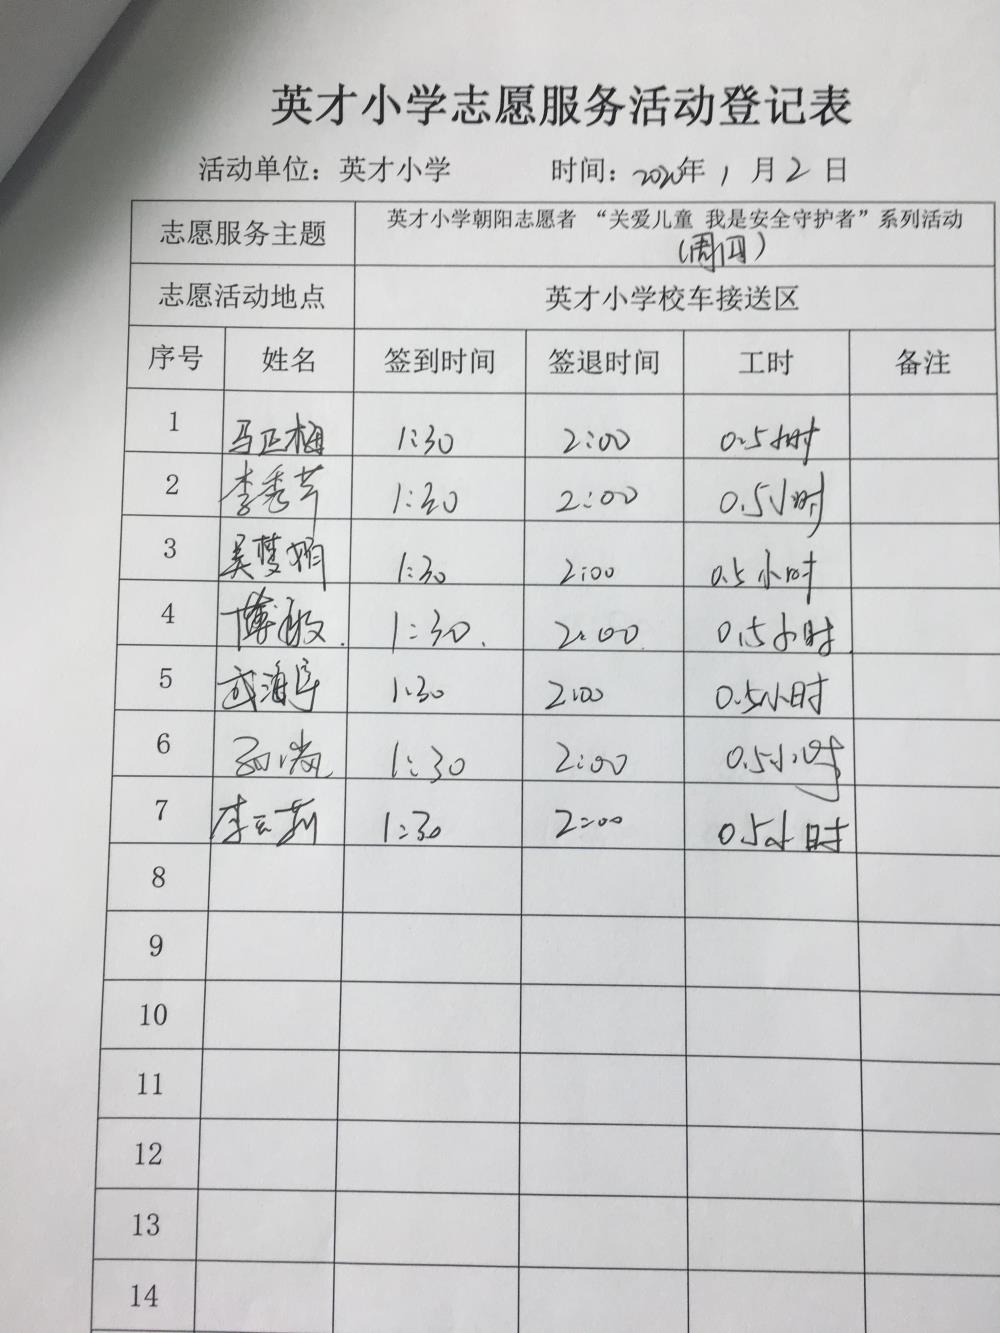 英才小学志愿服务活动登记表
活动单位：英才小学 时间：2020年 1 月 2 日
志愿服务主题 英才小学朝阳志愿者 “关爱儿童 我是安全守护者”系列活动
（周四）
志愿活动地点 英才小学校车接送区
序号 姓名 签到时间 签退时间 工时 备注
1 马正梅 1:30 2:00 0.5小时
2 李秀芹 1:30 2:00 0.5小时
3 吴梦娟 1:30 2:00 0.5小时
4 1:30 2:00 0.5小时
5 1:30 2:00 0.5小时
6 1:30 2:00 0.5小时
7 李云莉 1:30 2:00 0.5小时
8
9
10
11
12
13
14